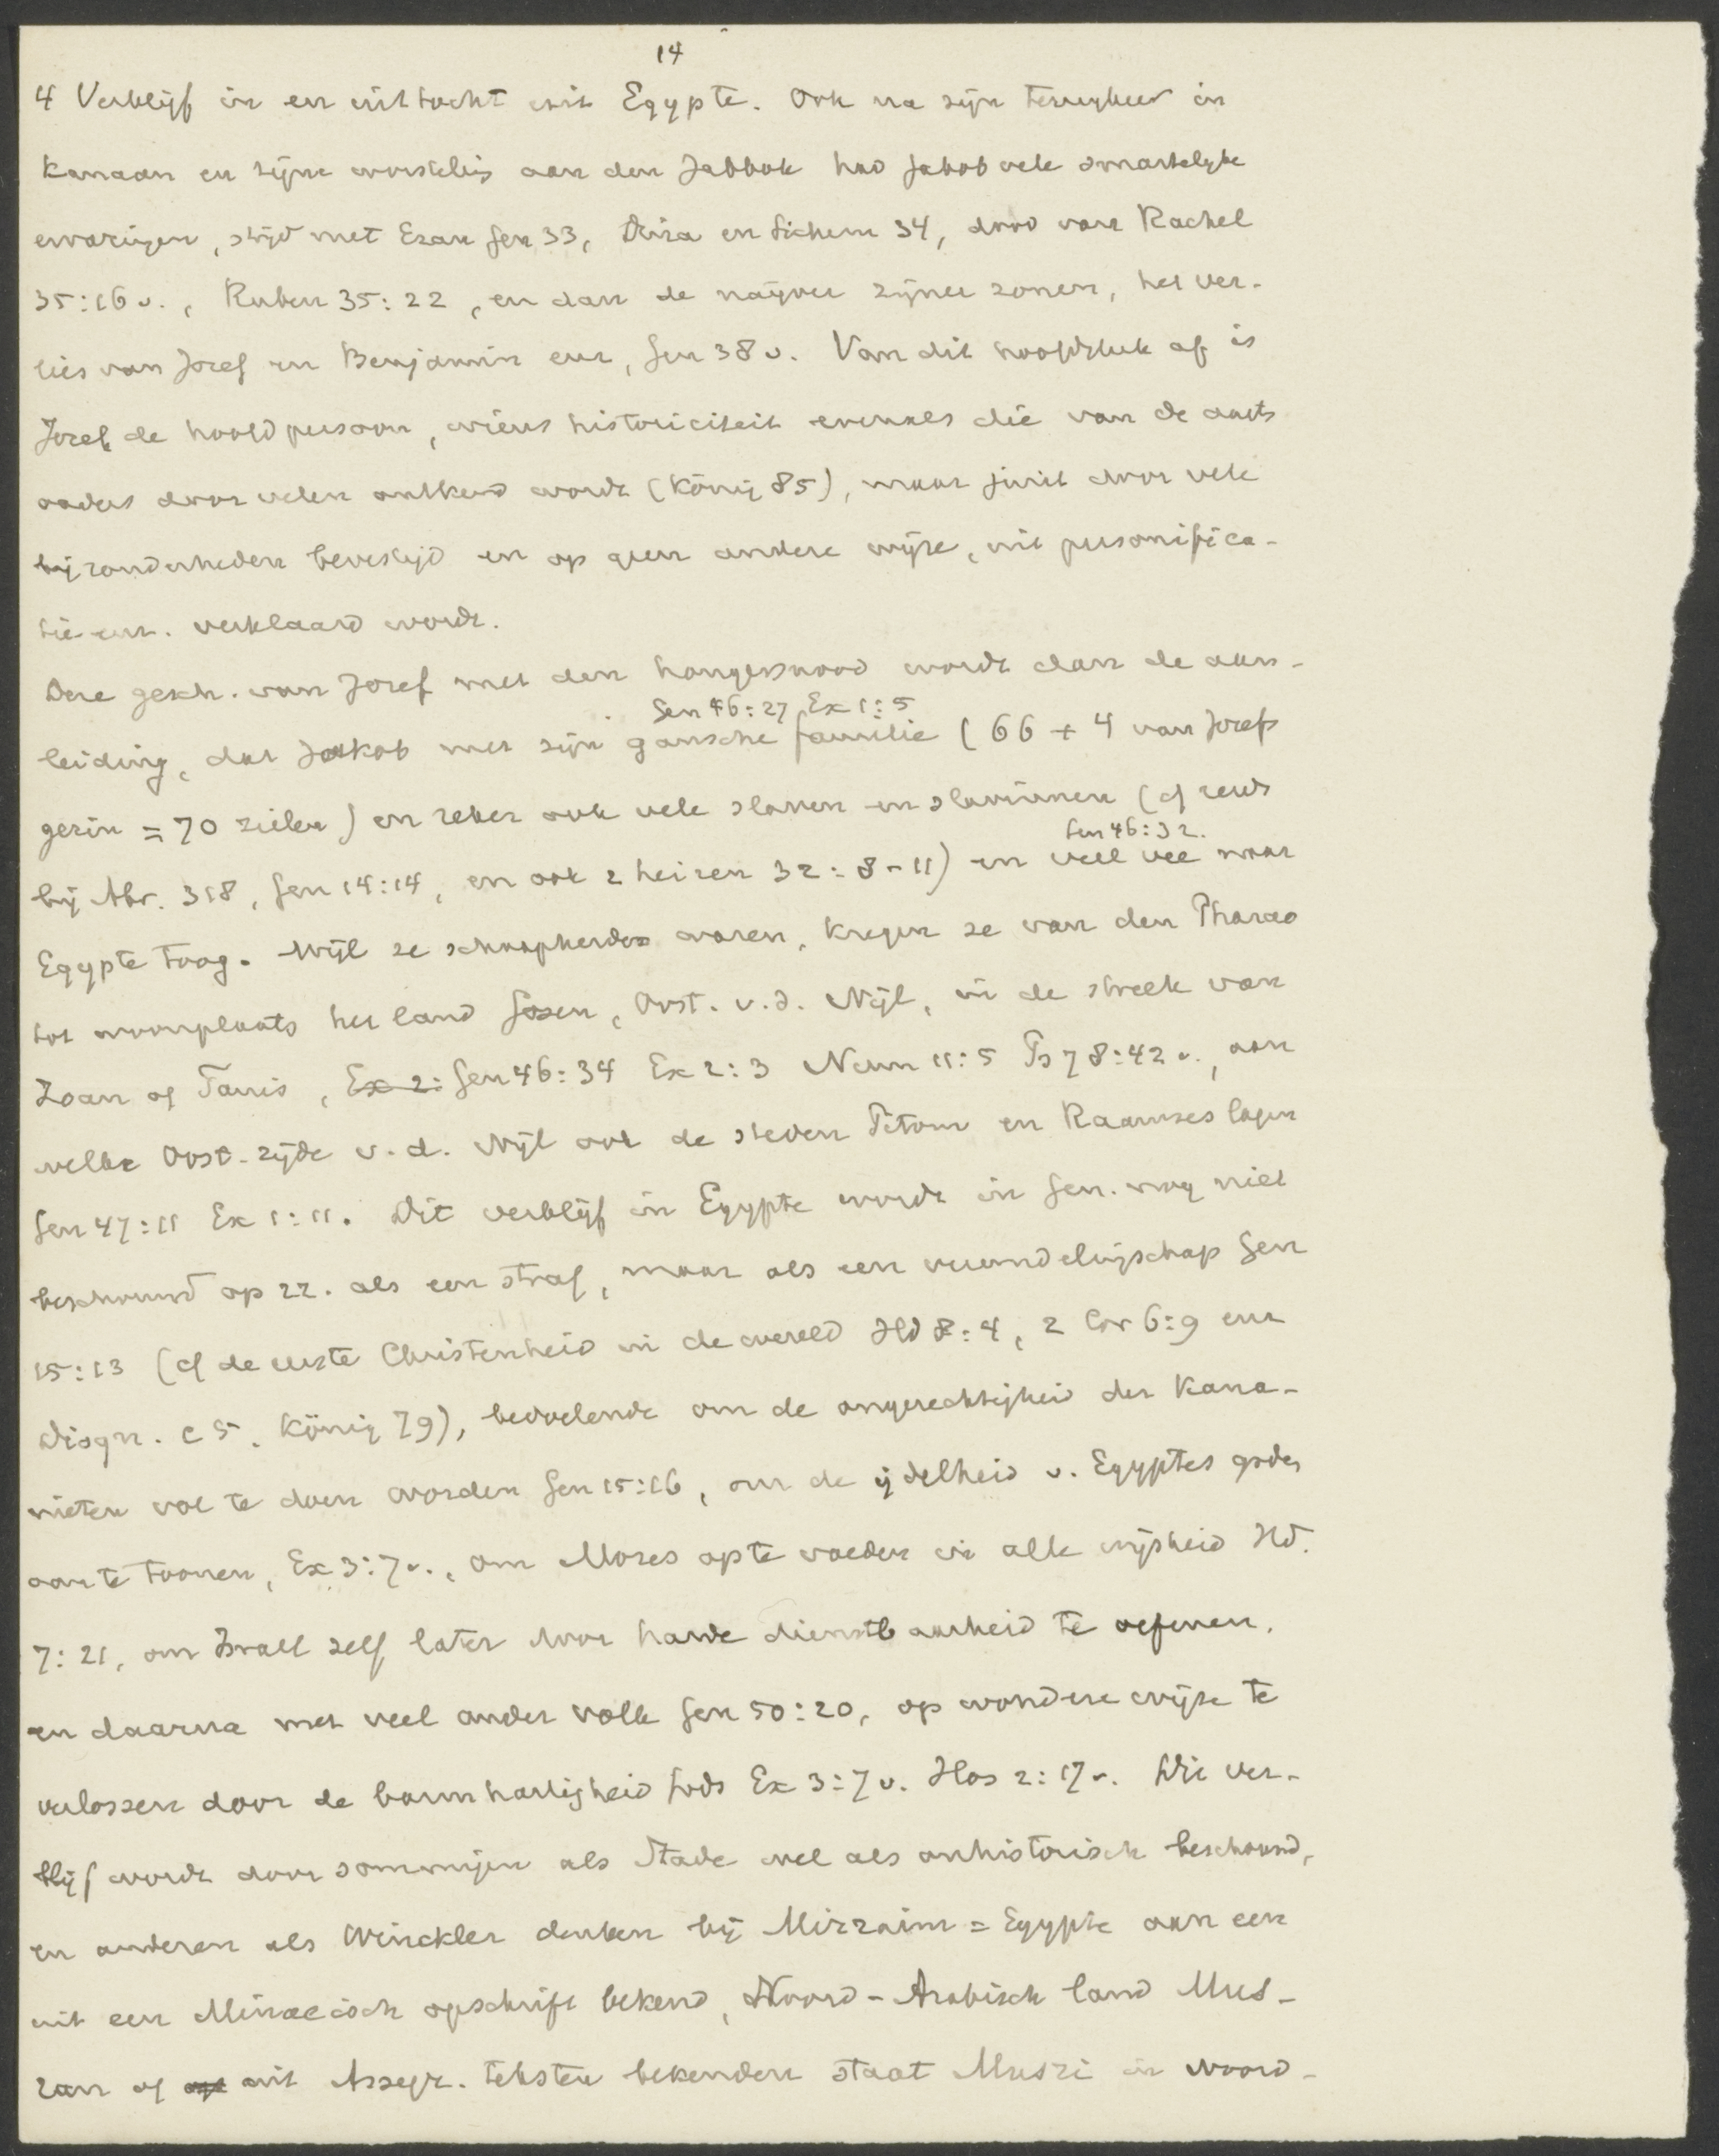 14
4 Verblijf in en uittocht uit Egypte. Ook na zijn terugkeer in
Kanaan en zijne worsteling aan den Jabbok had Jakob vele smartelijke
ervaringen, strijd met Ezau Gen 33, Dina en Sichem 34, dood van Rachel
35:16 v., Ruben 35:22, en dan de naijver zijner zonen, het ver-
lies van Jozef en Benjamin enz, Gen 38 v. Van dit hoofdstuk af is
Jozef de hoofdpersoon, wiens historiciteit evenals die van de aarts
vaders door velen ontkend wordt (König 85), maar juist door vele
bijzonderheden bevestigd en op geen andere wijze, uit personifica-
tie enz. verklaard wordt.
Deze gesch. van Jozef met den hongersnood wordt dan de aan-
Gen 46:27 Ex 1:5
leiding, dat Jakob met zijn gansche familie (66 + 4 van Jozefs
gezin = 70 zielen) en zeker ook vele slaven en slavinnen (cf reeds
Gen 46:32.
bij Abr. 318, Gen 14:14, en ook 2 heiren 32:8-11) en veel vee naar
Egypte toog. Wijl ze schaapherders waren, kregen ze van den Pharao
tot woonplaats het land Gosen, Oost. v.d. Nijl, in de streek van
Zoan of Tanis, Ex 2: Gen 46:34 Ex 2:3 Num 11:5 Ps 78:42 v., aan
welke Oost-zijde v.d. Nijl ook de steden Pitom en Raamses lagen
Gen 47:11 Ex 1:11. Dit verblijf in Egypte wordt in Gen. nog niet
beschouwd op zz. als een straf, maar als een vreemdelingschap Gen
15:13 (cf de eerste Christenheid in de wereld Hd 8:4, 2 Cor 6:9 enz
Diogn. c 5. König 79), bedoelende om de ongerechtigheid der Kana-
nieten vol te doen worden Gen 15:16, om de ijdelheid v. Egyptes goden
aan te toonen, Ex 3:7 v., om Mozes op te voeden in alle wijsheid Hd.
7:21, om Israel zelf later door harde dienstbaarheid te oefenen,
en daarna met veel ander volk Gen 50:20, op wondere wijze te
verlossen door de barmhartigheid Gods Ex 3:7 v. Hos 2:17 v. Dit ver-
blijf wordt door sommigen als Stade wel als onhistorisch beschouwd,
en anderen als Winckler denken bij Mizraim = Egypte aan een
uit een Minaeisch opschrift bekend, Noord-Arabisch land Mus-
ran of uit Assyr. teksten bekenden staat Musri in Noord-